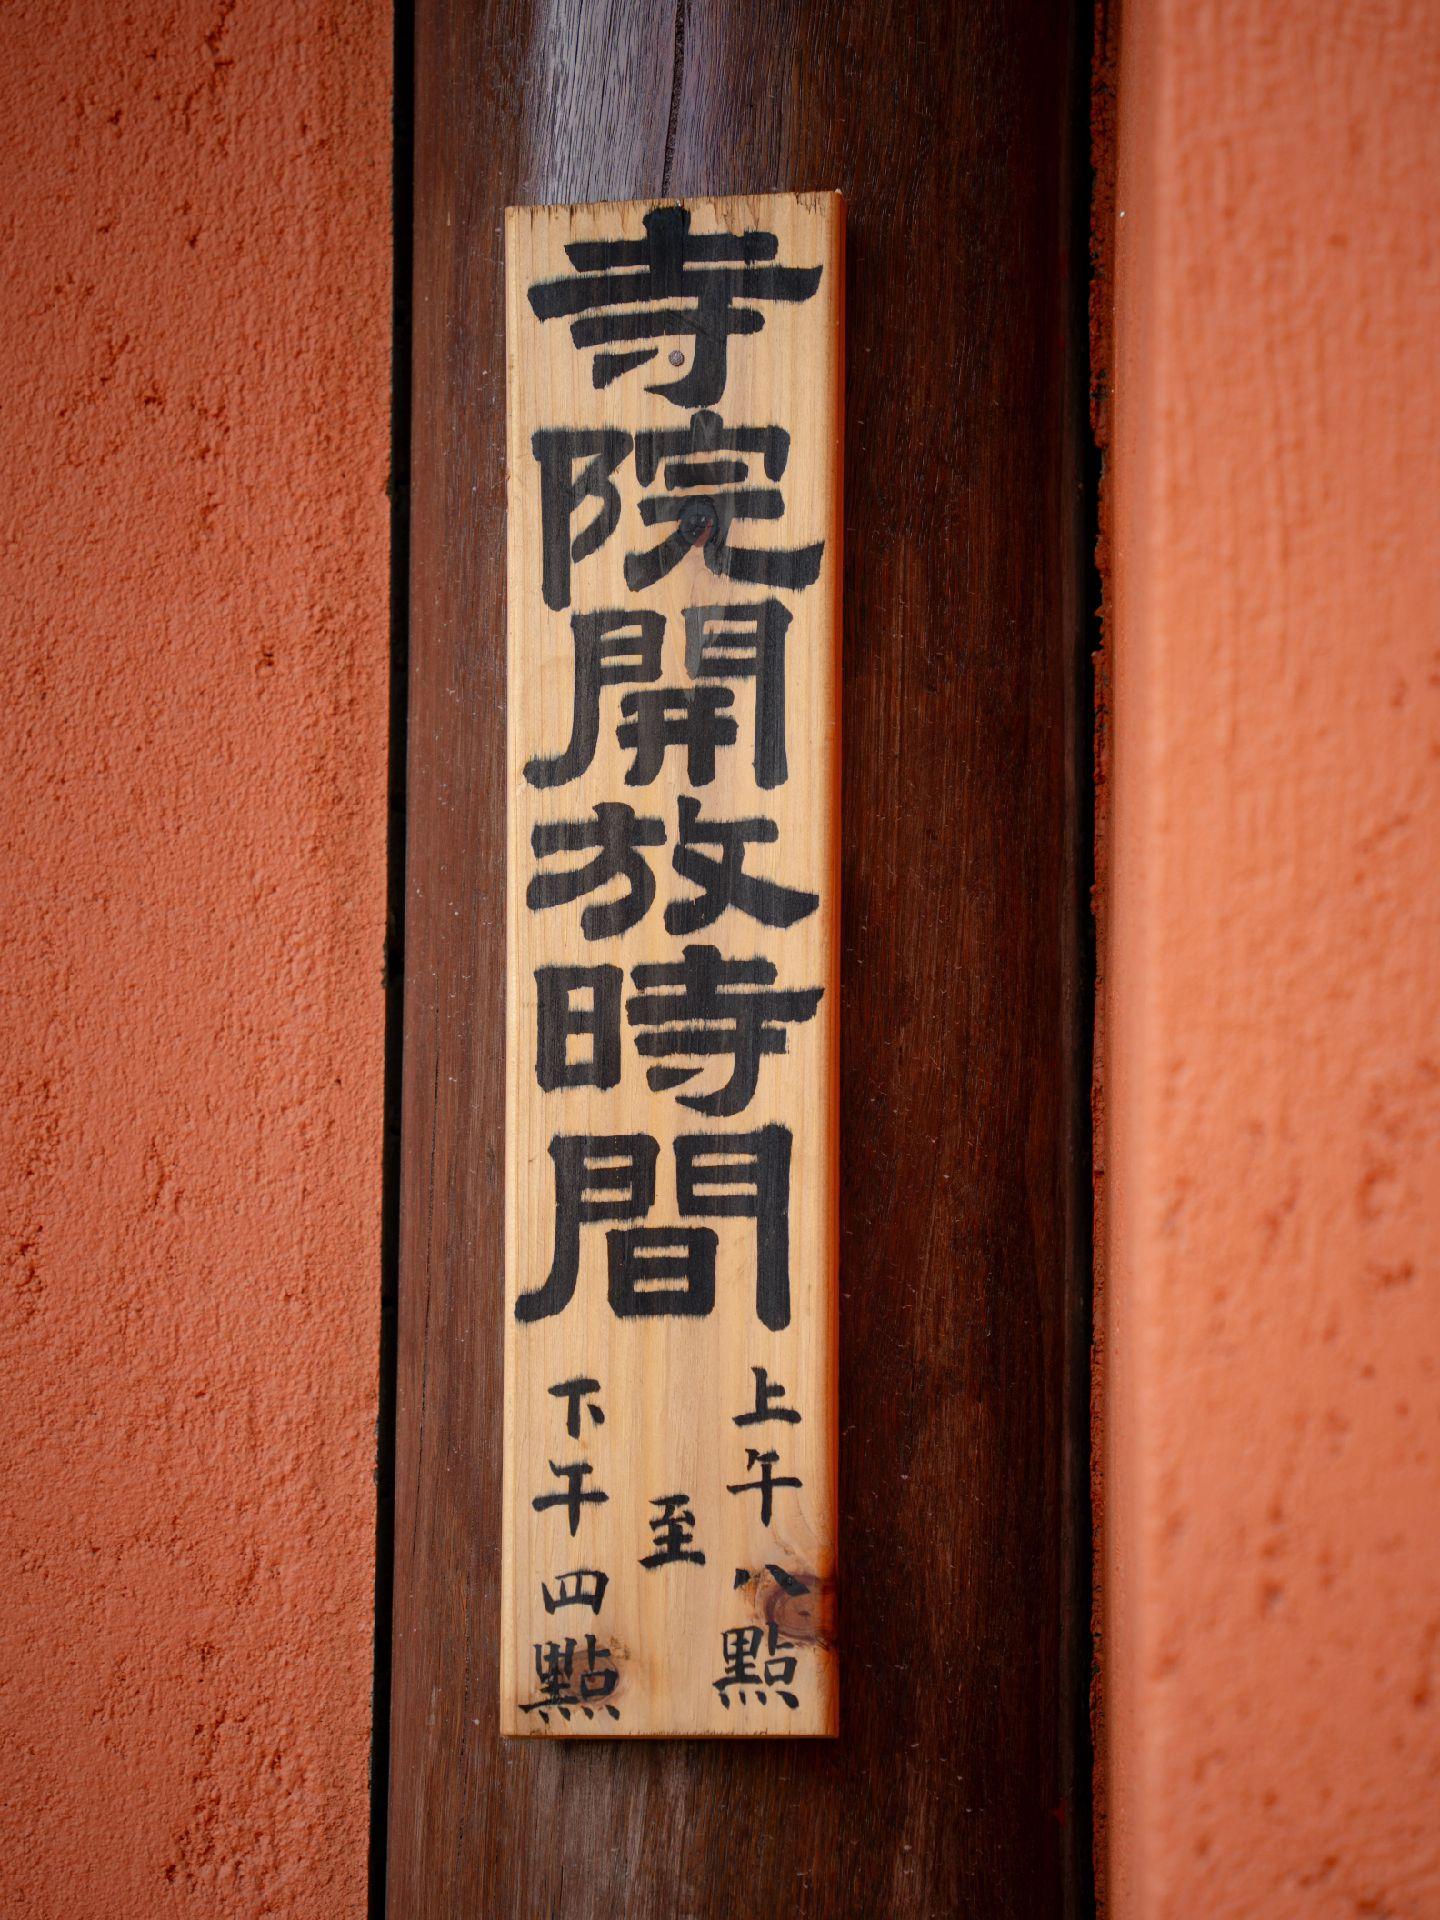 寺院開放時間
上午八點
至
下午四點